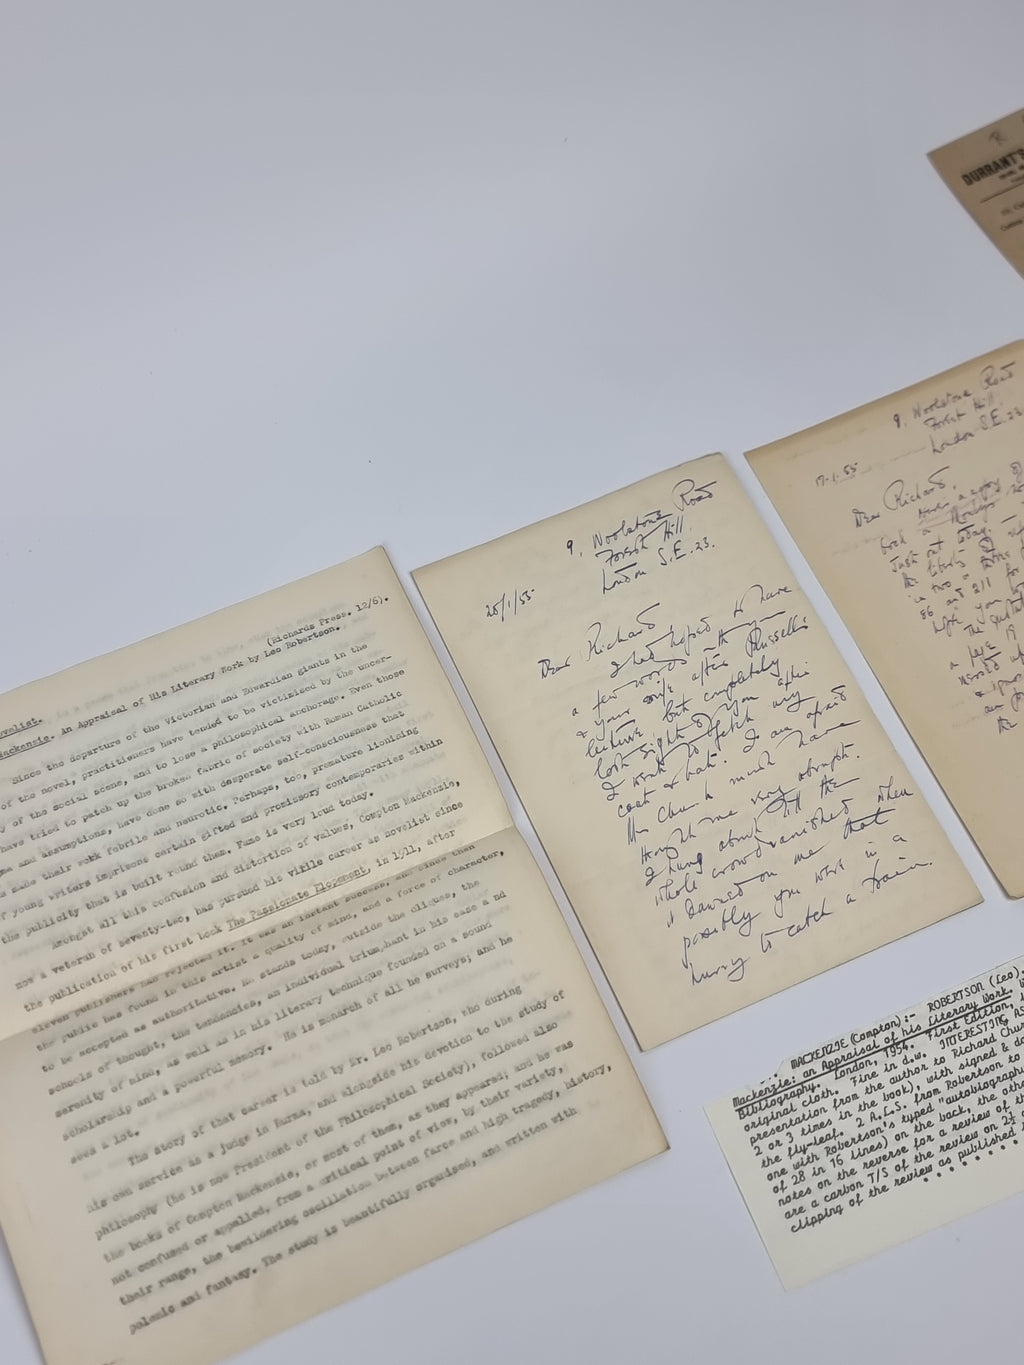 (Richards Press. 12/6).
ovelist.
ackenzie. An Appraisal of His Literary Work by Leo Robertson.
Since the departure of the Victorian and Edwardian giants in the
of the novel, practitioners have tended to be victimised by the uncer-
y of the social scene, and to lose a philosophical anchorage. Even those
have tried to patch up the broken fabric of society with Roman Catholic
and assumptions, have done so with desperate self-consciousness that
made their work febrile and neurotic. Perhaps, too, premature lionising
f young writers imprisons certain gifted and promissory contemporaries within
the publicity that is built round them. Fame is very loud today.
Amongst all this confusion and distortion of values, Compton Mackenzie,
now a veteran of seventy-two, has pursued his virile career as novelist since
the publication of his first book The Passionate Elopement, in 1911, after
eleven publishers had rejected it. It was an instant success, and since then
the public has found in this artist a quality of mind, and a force of character,
to be accepted as authoritative. He stands today, outside the cliques, the
schools of thought, the tendencies, an individual triumphant in his ease a nd
serenity of mind, as well as in his literary technique founded on a sound
scholarship and a powerful memory. He is monarch of all he surveys; and he
sees a lot.
The story of that career is told by Mr. Leo Robertson, who during
his own service as a judge in Burma, and alongside his devotion to the study of
philosophy (he is now President of the Philosophical Society), followed also
the books of Compton Mackenzie, or most of them, as they appeared; and he was
not confused or appalled, from a critical point of view, by their variety,
their range, the bewildering oscillation between farce and high tragedy, history,
polemic and fantasy. The study is beautifully organised, and written with
9, Woolstone Road
Forest Hill
London S.E.23.
28/1/55
Dear Richard,
I had hoped to have
a few words with you
& your wife after Russell's
lecture but completely
lost sight of you after
I went to fetch my
coat & hat. I am afraid
Mrs Church must have
thought me very abrupt.
I hung about till the
whole crowd vanished when
it dawned on me that
possibly you were in a
hurry to catch a train.
9, Woolstone Road
Forest Hill
London S.E.23
17.1.55
Dear Richard,
Here's a copy of
just out today.
in two
86 and 211 for
DURRANT'S
MACKENZIE (Compton):- ROBERTSON (Leo).
Mackenzie: an Appraisal of his Literary Work.
Bibliography. London, 1954. First Edition,
original cloth. Fine in d.w. INTERESTING AS
presentation from the author to Richard Chur
2 or 3 times in the book), with signed & da
the fly-leaf. 2 A.L.S. from Robertson to
one with Robertson's typed "autobiography
of 28 in 16 lines) on the back, the othe
notes on the reverse for a review of the
are a carbon T/S of the review on 2½
clipping of the review as published